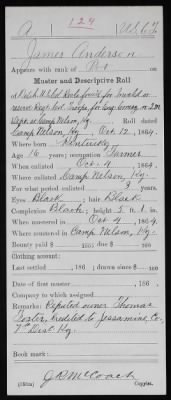 A 124 U.S.C.T.
James Anderson
Appears with rank of Pvt. on
Muster and Descriptive Roll
of
Dept. at Camp Nelson, Ky. Roll dated
Camp Nelson, Ky. Oct 12, 1864.
Where born Kentucky
Age 16 years; occupation Farmer
When enlisted Oct. 4, 1864.
Where enlisted Camp Nelson, Ky.
For what period enlisted 3 years.
Eyes Black; hair Black
Complexion Black; height 5 ft. 1 in.
When mustered in Oct. 4, 1864.
Where mustered in Camp Nelson, Ky.
Bounty paid $ 100; due $ 100
Clothing account:
Last settled , 186 ; drawn since $ 100
Date of first muster , 186
Company to which assigned
Remarks: Reputed owner Thomas
Foster, credited to Jessamine, Co.,
7" Dist Ky.
Book mark:
J R McCoach
Copyist.